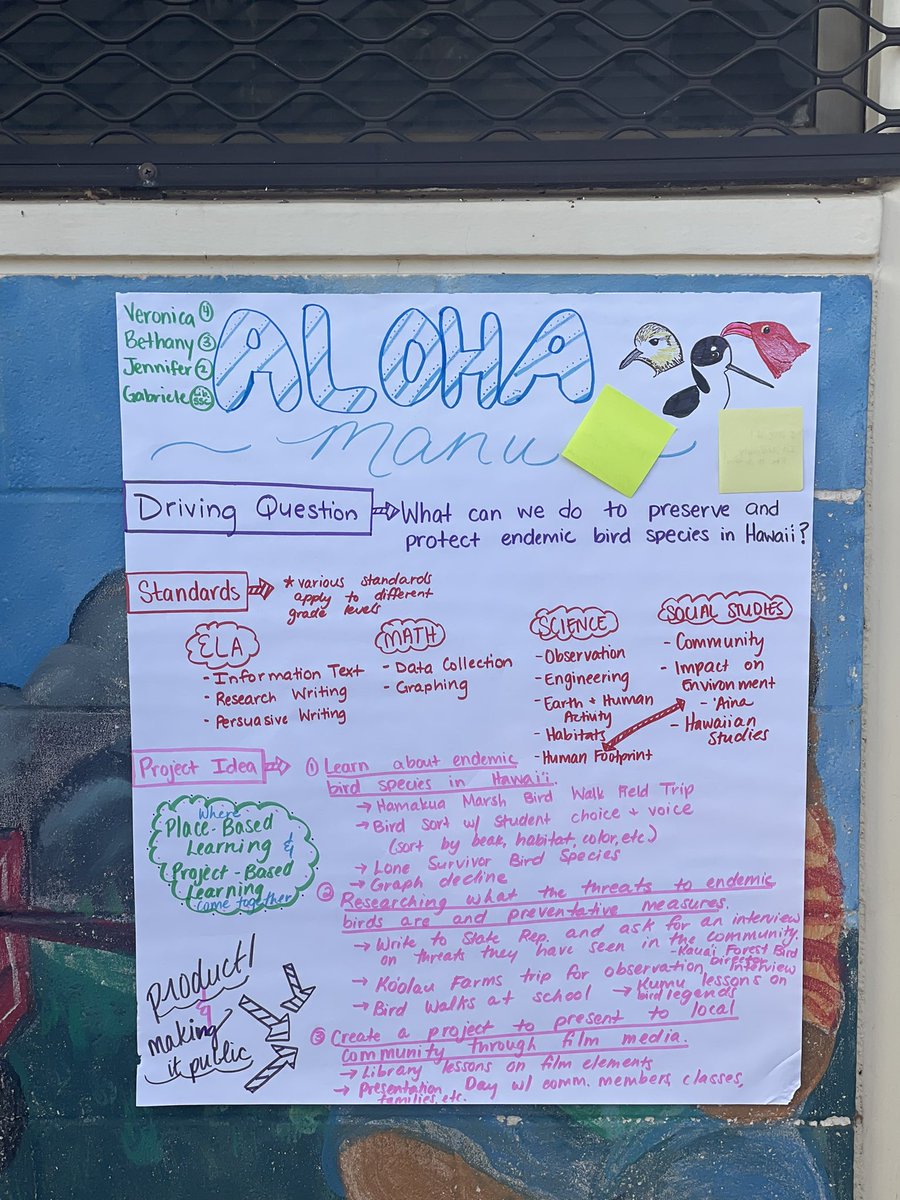 Veronica 4
Bethany 3
Jennifer 2
Gabriele Lib. SSC
ALOHA
manu
Driving Question
What can we do to preserve and
protect endemic bird species in Hawaii?
Standards
* various standards
apply to different
grade levels
ELA
- Information Text
- Research Writing
- Persuasive Writing
MATH
- Data Collection
- Graphing
SCIENCE
- Observation
- Engineering
- Earth + Human
Activity
- Habitats
- Human Footprint
SOCIAL STUDIES
- Community
- Impact on
Environment
- 'Aina
- Hawaiian
Studies
Project Idea
① Learn about endemic
bird species in Hawai'i.
→ Hamakua Marsh Bird Walk Field Trip
→ Bird Sort w/ student choice + voice
(sort by beak, habitat, color, etc)
→ Lone Survivor Bird Species
→ Graph decline
② Researching what the threats to endemic
birds are and preventative measures.
→ Write to State Rep. and ask for an interview
on threats they have seen in the community.
- Kauai Forest Bird
Director Interview
→ Ko'olau Farms trip for observation
→ Kumu lessons on
bird legends
→ Bird Walks at school
③ Create a project to present to local
community through film media.
→ Library lessons on film elements
→ Presentation Day w/ comm. members, classes,
families, etc.
where
Place-Based
Learning &
Project-Based
Learning
come together
product/
making
it public